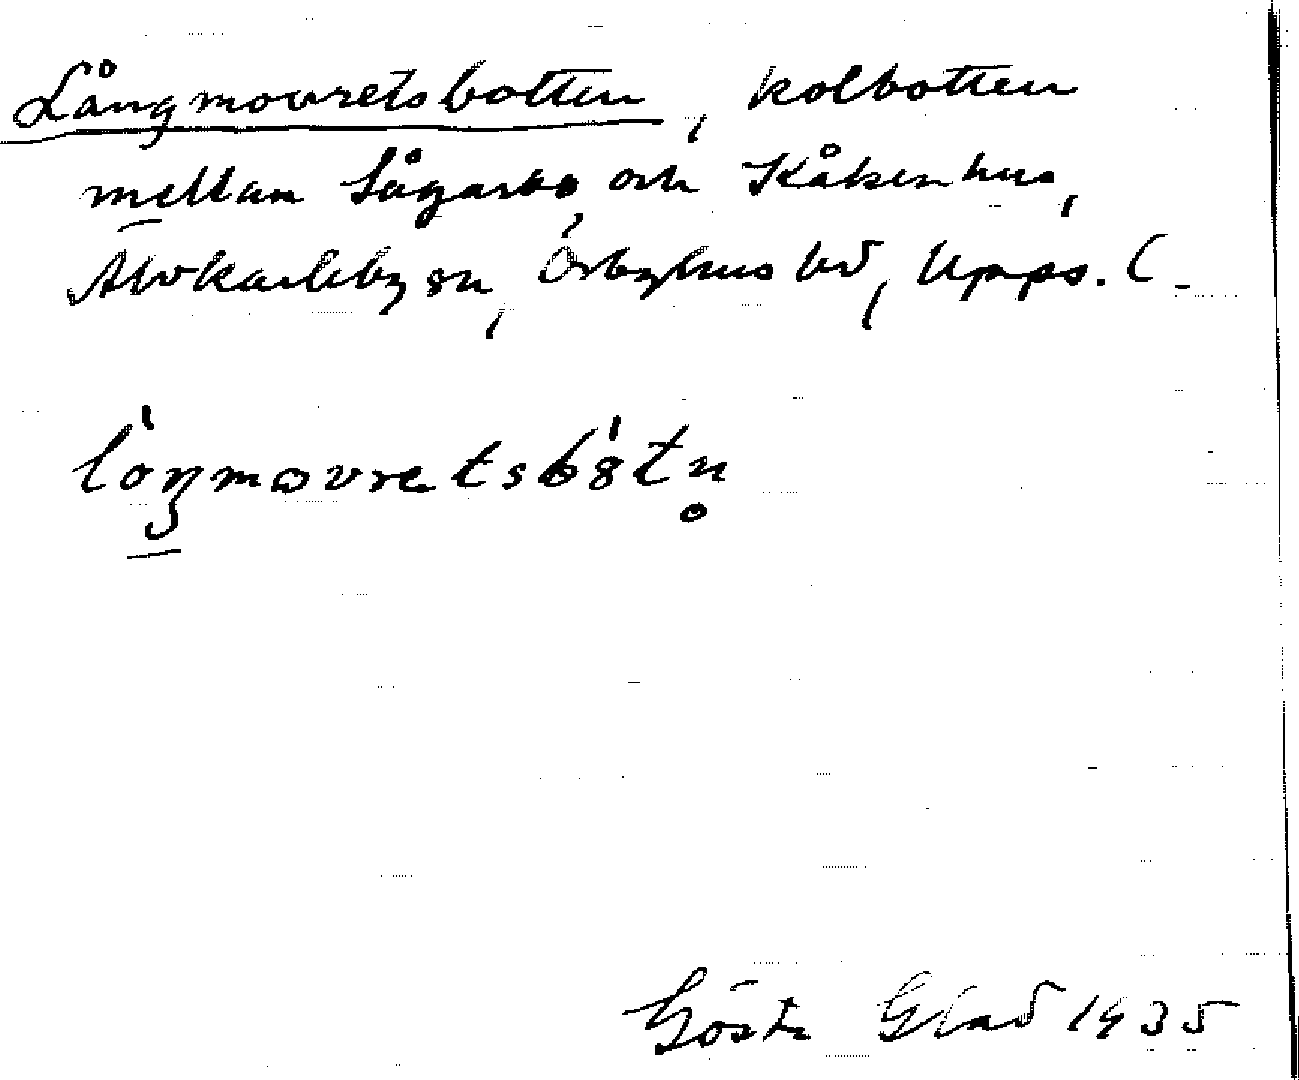 Långmovretsbotten, kolbotten
mellan Sågarbo och Kåkenhus,
Älvkarleby sn, Örbyhus hd, Upps. l
lóŋmovretsb8́tn̥
Gösta Glad 1935